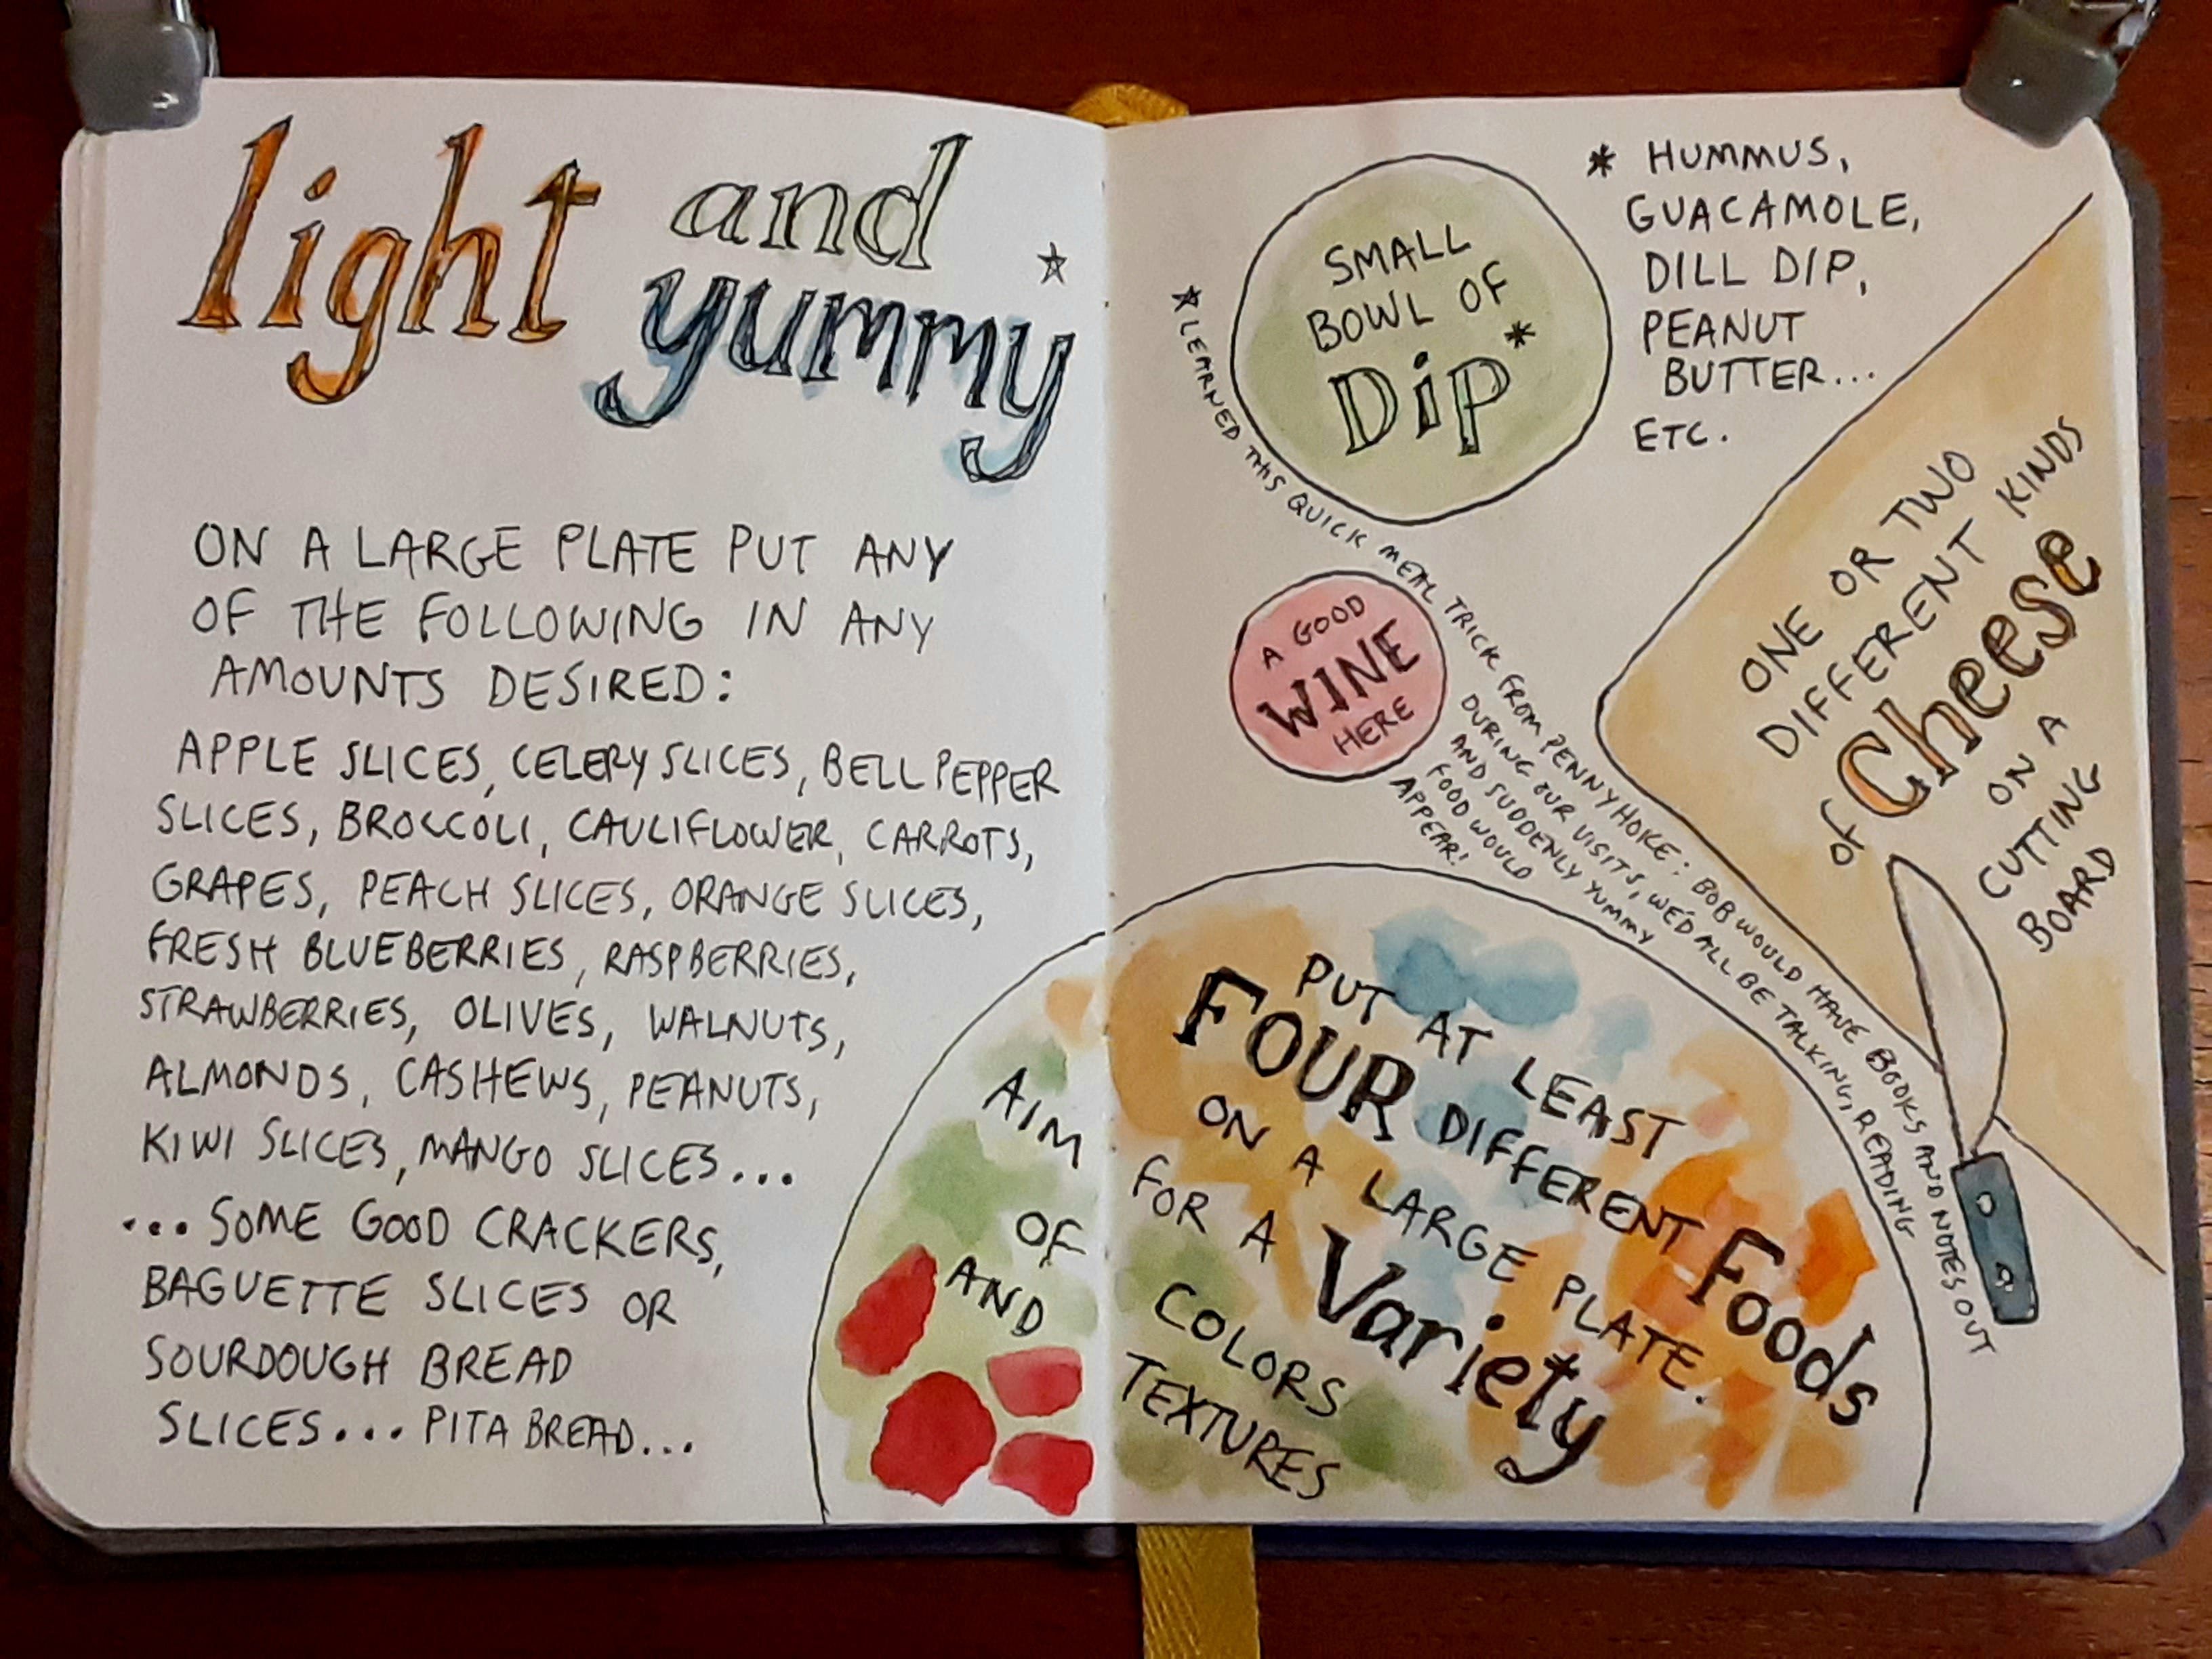 light and
yummy ☆
ON A LARGE PLATE PUT ANY
OF THE FOLLOWING IN ANY
AMOUNTS DESIRED:
APPLE SLICES, CELERY SLICES, BELL PEPPER
SLICES, BROCCOLI, CAULIFLOWER, CARROTS,
GRAPES, PEACH SLICES, ORANGE SLICES,
FRESH BLUEBERRIES, RASPBERRIES,
STRAWBERRIES, OLIVES, WALNUTS,
ALMONDS, CASHEWS, PEANUTS,
KIWI SLICES, MANGO SLICES...
...SOME GOOD CRACKERS,
BAGUETTE SLICES OR
SOURDOUGH BREAD
SLICES... PITA BREAD...
SMALL
BOWL OF
Dip*
* HUMMUS,
GUACAMOLE,
DILL DIP,
PEANUT
BUTTER...
ETC.
ONE OR TWO
DIFFERENT KINDS
of Cheese
ON A
CUTTING
BOARD
A GOOD
WINE
HERE
☆ LEARNED THIS QUICK MEAL TRICK FROM PENNY HOKE: BOB WOULD HAVE BOOKS AND NOTES OUT
DURING OUR VISITS, WE'D ALL BE TALKING, READING
AND SUDDENLY YUMMY
FOOD WOULD
APPEAR!
PUT AT LEAST
FOUR DIFFERENT Foods
ON A LARGE PLATE.
AIM FOR A Variety
OF COLORS
AND TEXTURES